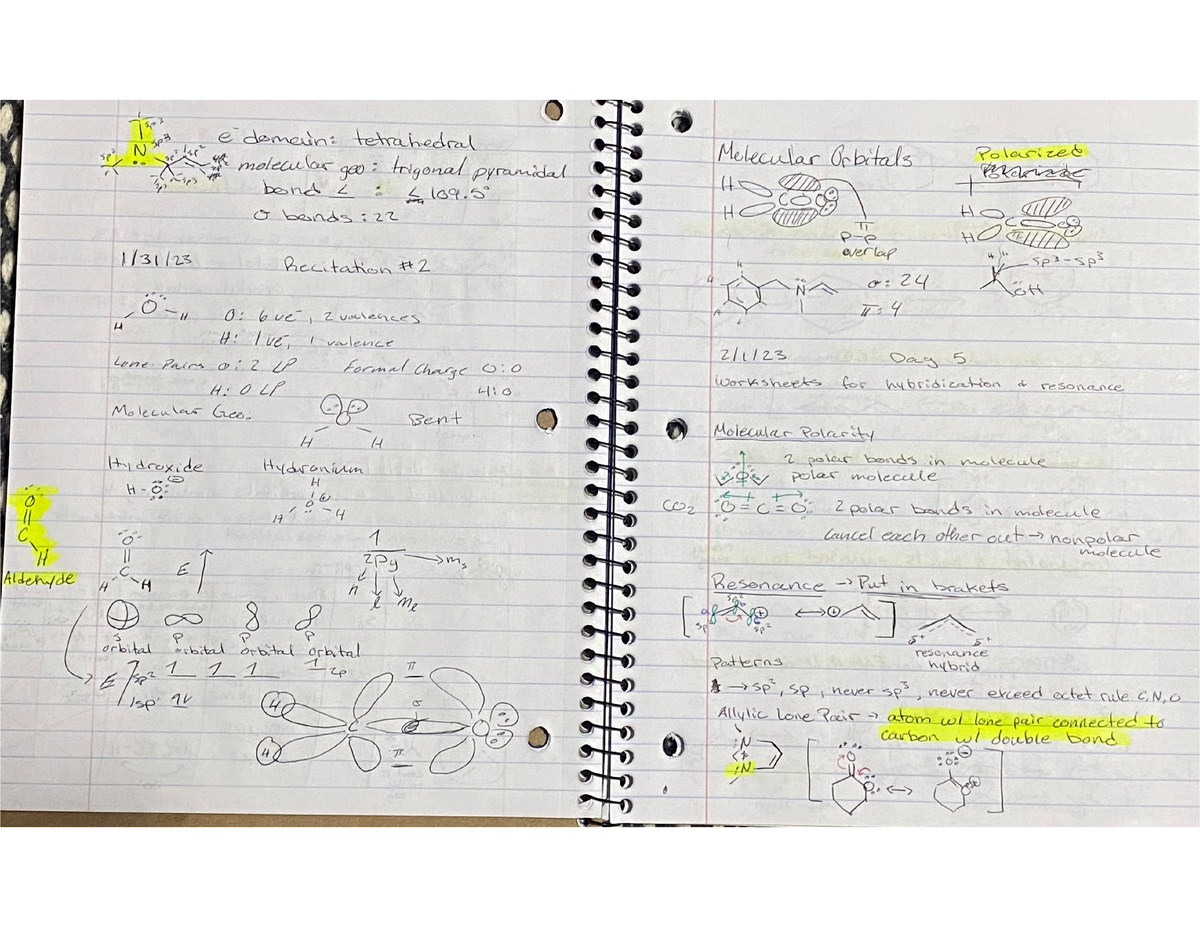 sp3
N
sp3
sp2
e⁻ domain: tetrahedral
molecular geo: trigonal pyramidal
bond ∠ : ≤ 109.5°
σ bonds: 22
1/31/23 Recitation #2
H O H
O: 6 ve⁻, 2 valences
H: 1 ve⁻, 1 valence
Lone Pairs O: 2 LP Formal Charge O:0
H: 0 LP H:0
Molecular Geo. Bent
H H
Hydroxide Hydronium
H-O: ⊖ H
O ⊕
H H
O
C
H
Aldehyde
O
C
H H
E
1
2py → ms
n l ml
s p p p
orbital orbital orbital orbital
E sp2 1 1 1 1 2p
1sp
π
σ
H C O
H
π
Molecular Orbitals
H
H C O
π
p-p
overlap
Polarized
H
H C O
π
N σ: 24
π: 4
sp3-sp3
OH
2/1/23 Day 5
Worksheets for hybridization & resonance
Molecular Polarity
2 polar bonds in molecule
polar molecule
CO2 O=C=O 2 polar bonds in molecule
cancel each other out → nonpolar
molecule
Resonance → Put in brakets
sp2
sp2
⊕ ↔ ⊕
δ+ δ+
resonance
hybrid
Patterns
→ sp2, sp, never sp3, never exceed octet rule C,N,O
Allylic Lone Pair → atom w/ lone pair connected to
carbon w/ double bond
:N
:N
O
O ↔ O ⊖
O ⊕